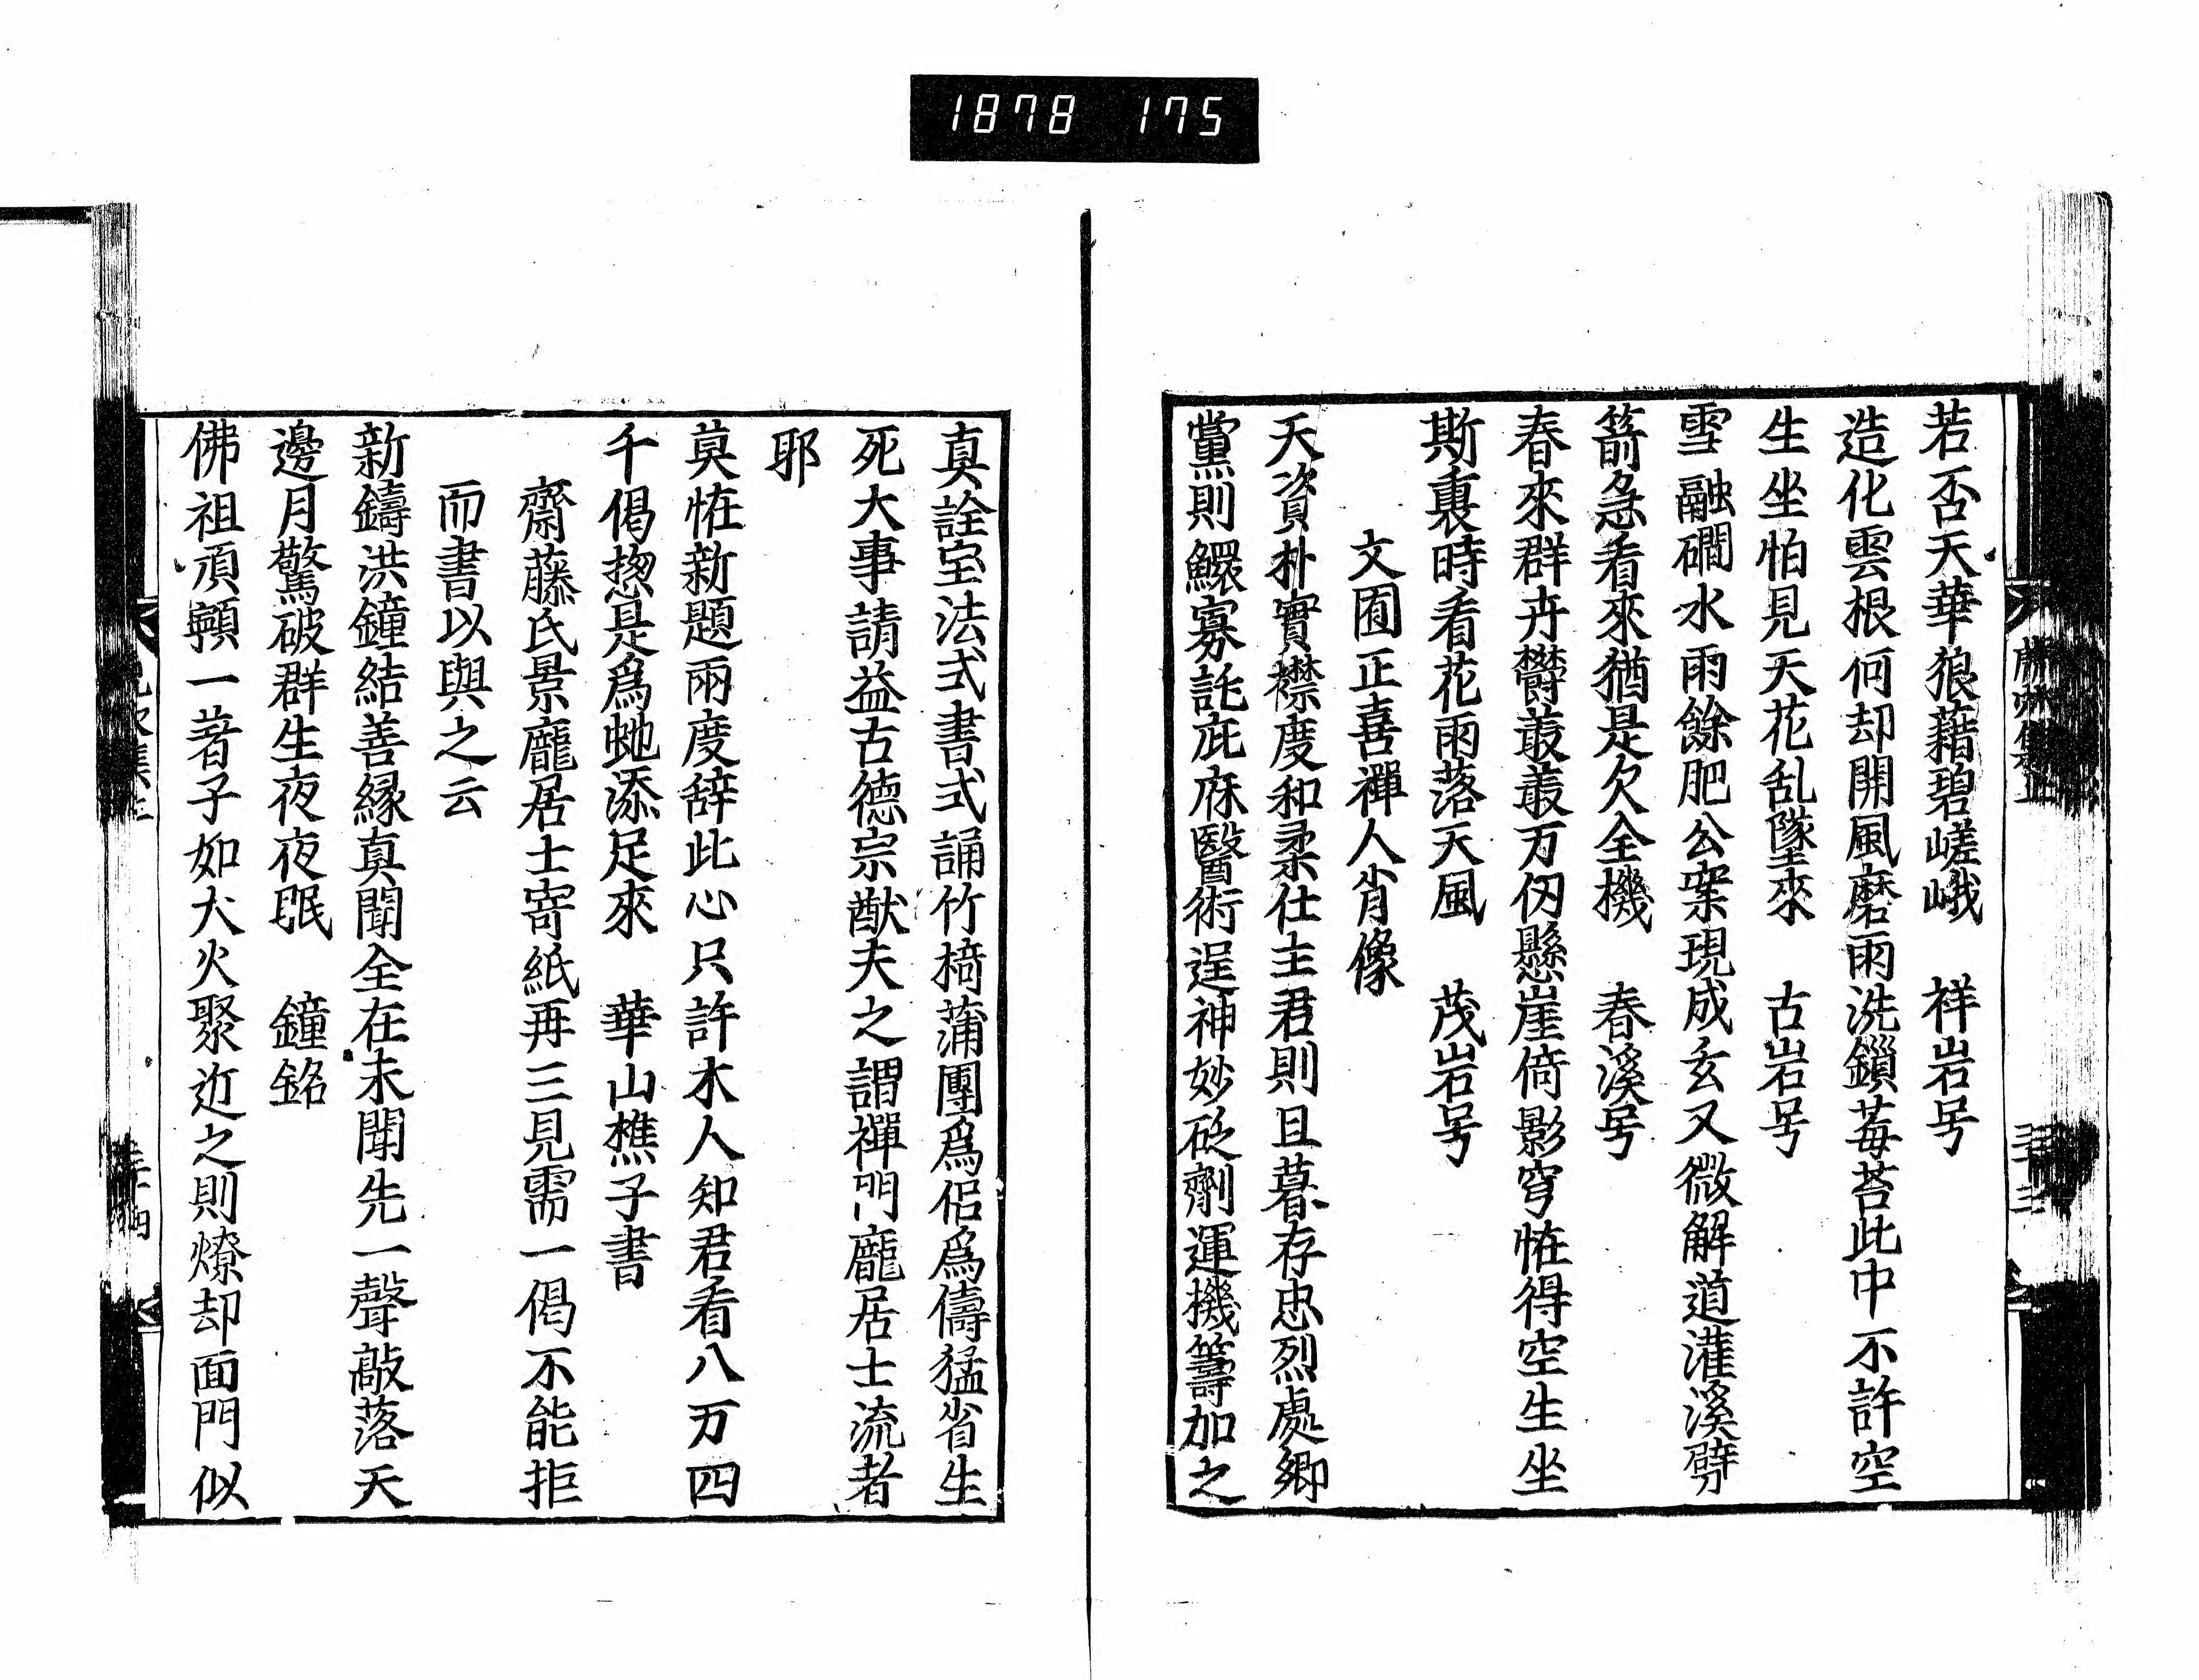 1878 175
若否天華狼藉碧嵯峨 祥岩号
造化雲根何却開風磨雨洗鎖莓苔此中不許空
生坐怕見天花乱墜來 古岩号
雪融磵水雨餘肥公案現成玄又微解道灌溪劈
箭急看來猶是欠全機 春溪号
春來群卉欝叢叢万仭懸崖倚影穹恠得空生坐
斯裏時看花雨落天風 茂岩号
文囿正喜禪人肖像
天資朴實襟度和柔仕主君則且暮存忠烈處郷
黨則鰥寡託庇庥醫術逞神妙砭劑運機籌加之
真詮宝法式書式誦竹椅蒲團爲侶爲儔猛省生
死大事請益古德宗猷夫之謂禪門龐居士流者
耶
莫恠新題兩度辞此心只許木人知君看八万四
千偈揔是爲虵添足來 華山樵子書
齋藤氏景龐居士寄紙再三見需一偈不能拒
而書以與之云
新鑄洪鐘結善縁真聞全在未聞先一聲敲落天
邊月驚破群生夜夜眠 鐘銘
佛祖頂𩕳一著子如大火聚近之則燎却面門似